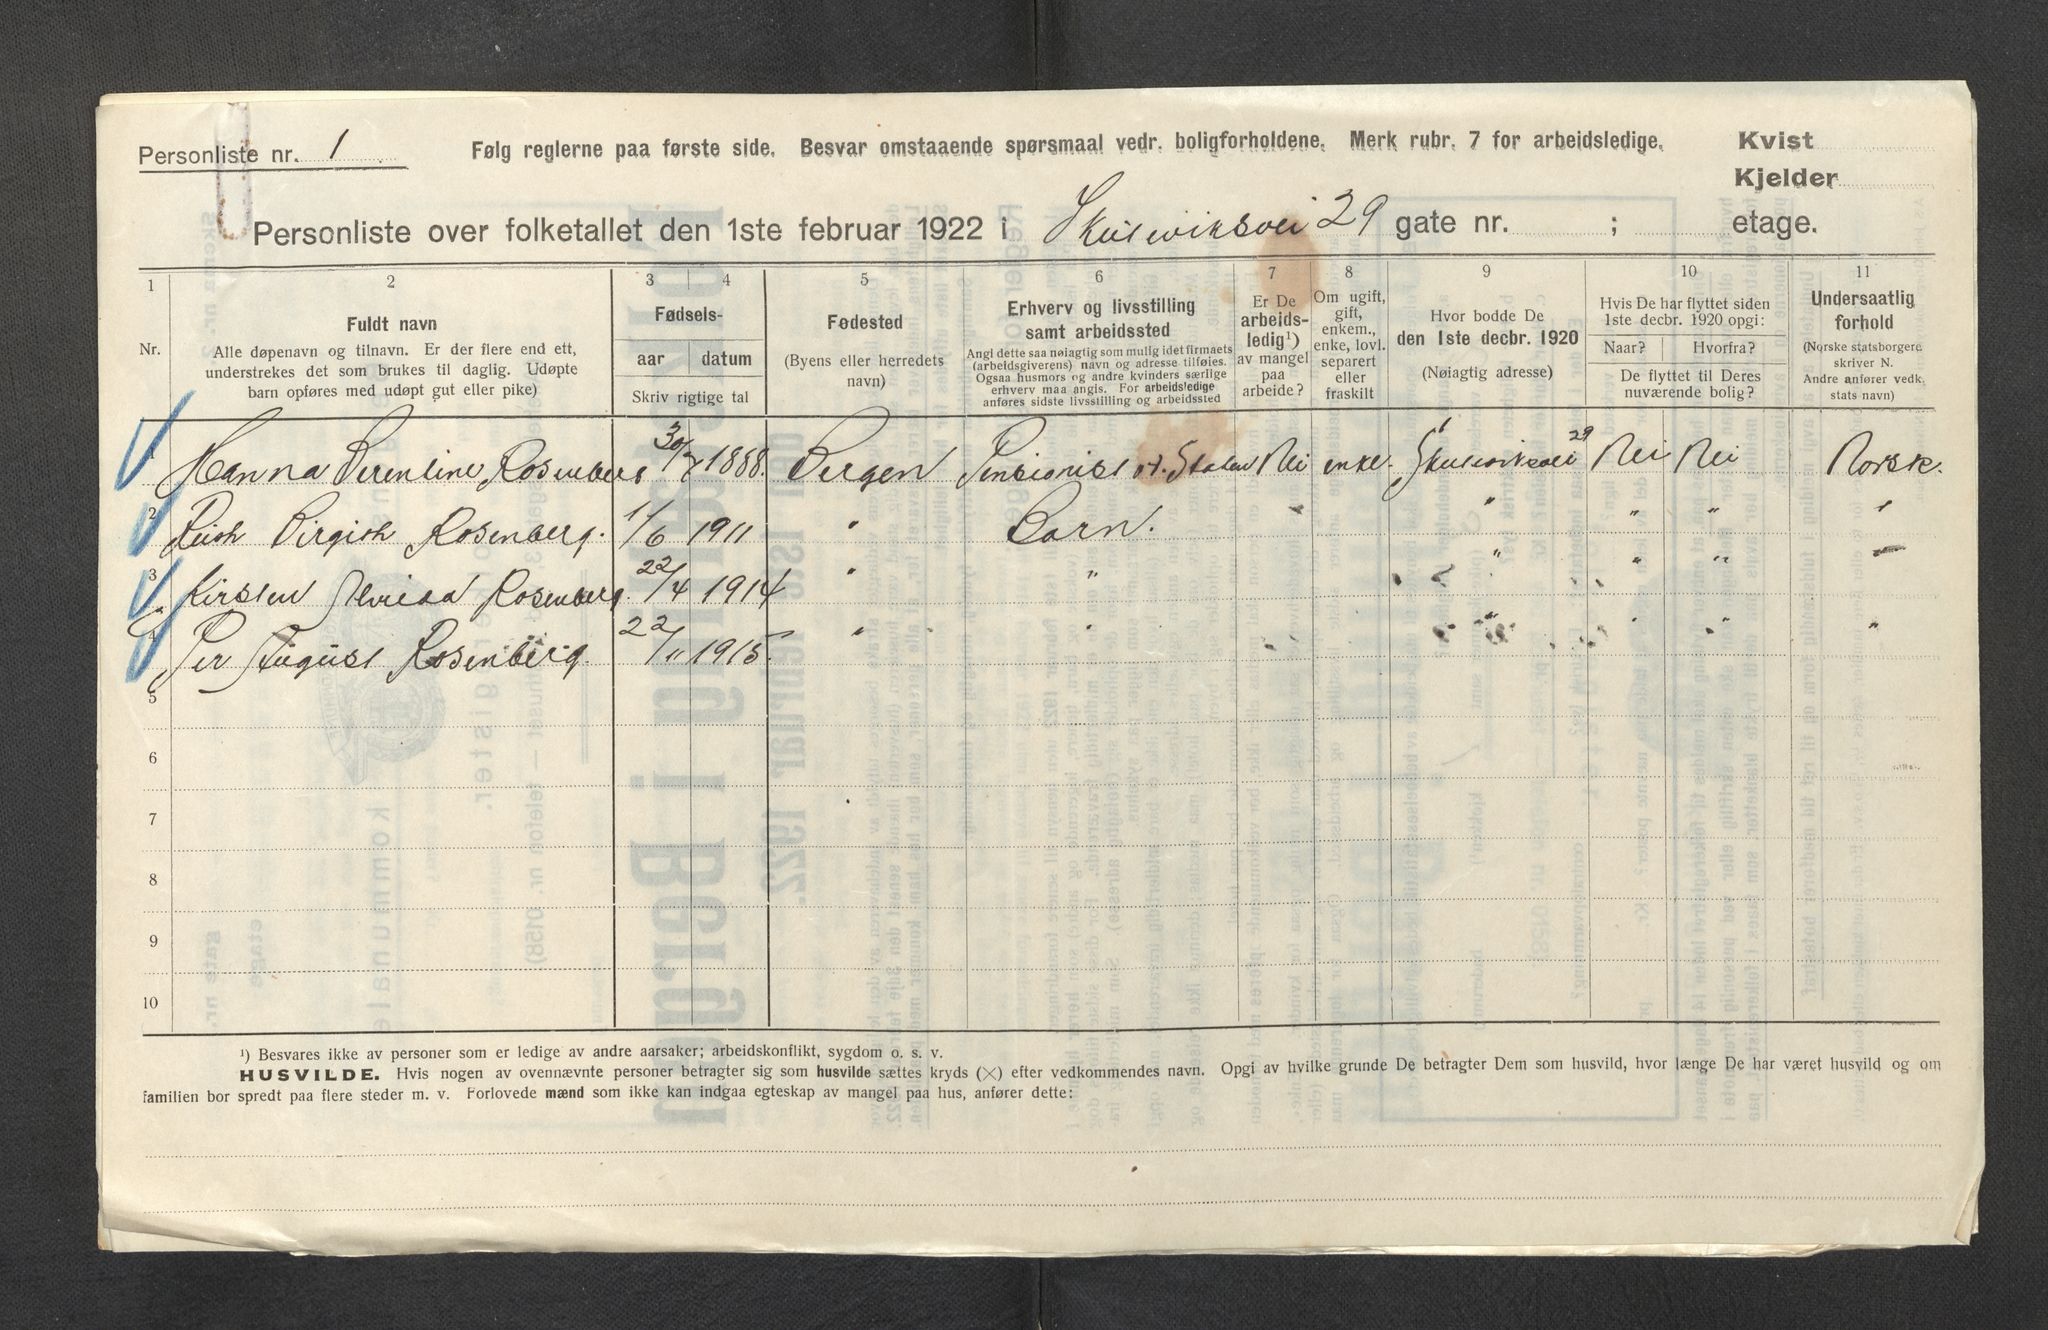 Personliste nr. 1
Følg reglerne paa første side. Besvar omstaaende spørsmaal vedr. boligforholdene. Merk rubr. 7 for arbeidsledige.
Kvist
Kjelder
Personliste over folketallet den 1ste februar 1922 i Skuteviksvei 29 gate nr. ; etage.
1 2 3 4 5 6 7 8 9 10 11
Nr.
Fuldt navn
Alle døpenavn og tilnavn. Er der flere end ett,
understrekes det som brukes til daglig. Udøpte
barn opføres med udøpt gut eller pike)
Fødsels-
aar datum
Skriv rigtige tal
Fødested
(Byens eller herredets
navn)
Erhverv og livsstilling
samt arbeidssted
Angi dette saa nøiagtig som mulig idet firmaets
(arbeidsgiverens) navn og adresse tilføies.
Ogsaa husmors og andre kvinders særlige
erhverv maa angis. For arbeidsledige
anføres sidste livsstilling og arbeidssted
Er De
arbeids-
ledig¹)
av mangel
paa
arbeide?
Om ugift,
gift,
enkem.,
enke, lovl.
separert
eller
fraskilt
Hvor bodde De
den 1ste decbr. 1920
(Nøiagtig adresse)
Hvis De har flyttet siden
1ste decbr. 1920 opgi:
Naar? Hvorfra?
De flyttet til Deres
nuværende bolig?
Undersaatlig
forhold
(Norske statsborgere
skriver N.
Andre anfører vedk.
stats navn)
1 Hanna Berentine Rosenberg 30/7 1888. Bergen Pensionist Staten Nei enke. Skuteviksvei 29 Nei Nei Norsk.
2 Ruth Birgith Rosenberg. 1/6 1911 " Barn. " " " " "
3 Kirsten Rosenberg. 22/4 1914 " " " " "
4 Per August Rosenberg. 22/11 1915. " " " " " "
5
6
7
8
9
10
¹) Besvares ikke av personer som er ledige av andre aarsaker; arbeidskonflikt, sygdom o. s. v.
HUSVILDE. Hvis nogen av ovennævnte personer betragter sig som husvilde sættes kryds (×) efter vedkommendes navn. Opgi av hvilke grunde De betragter Dem som husvild, hvor længe De har været husvild og om
familien bor spredt paa flere steder m. v. Forlovede mænd som ikke kan indgaa egteskap av mangel paa hus, anfører dette: